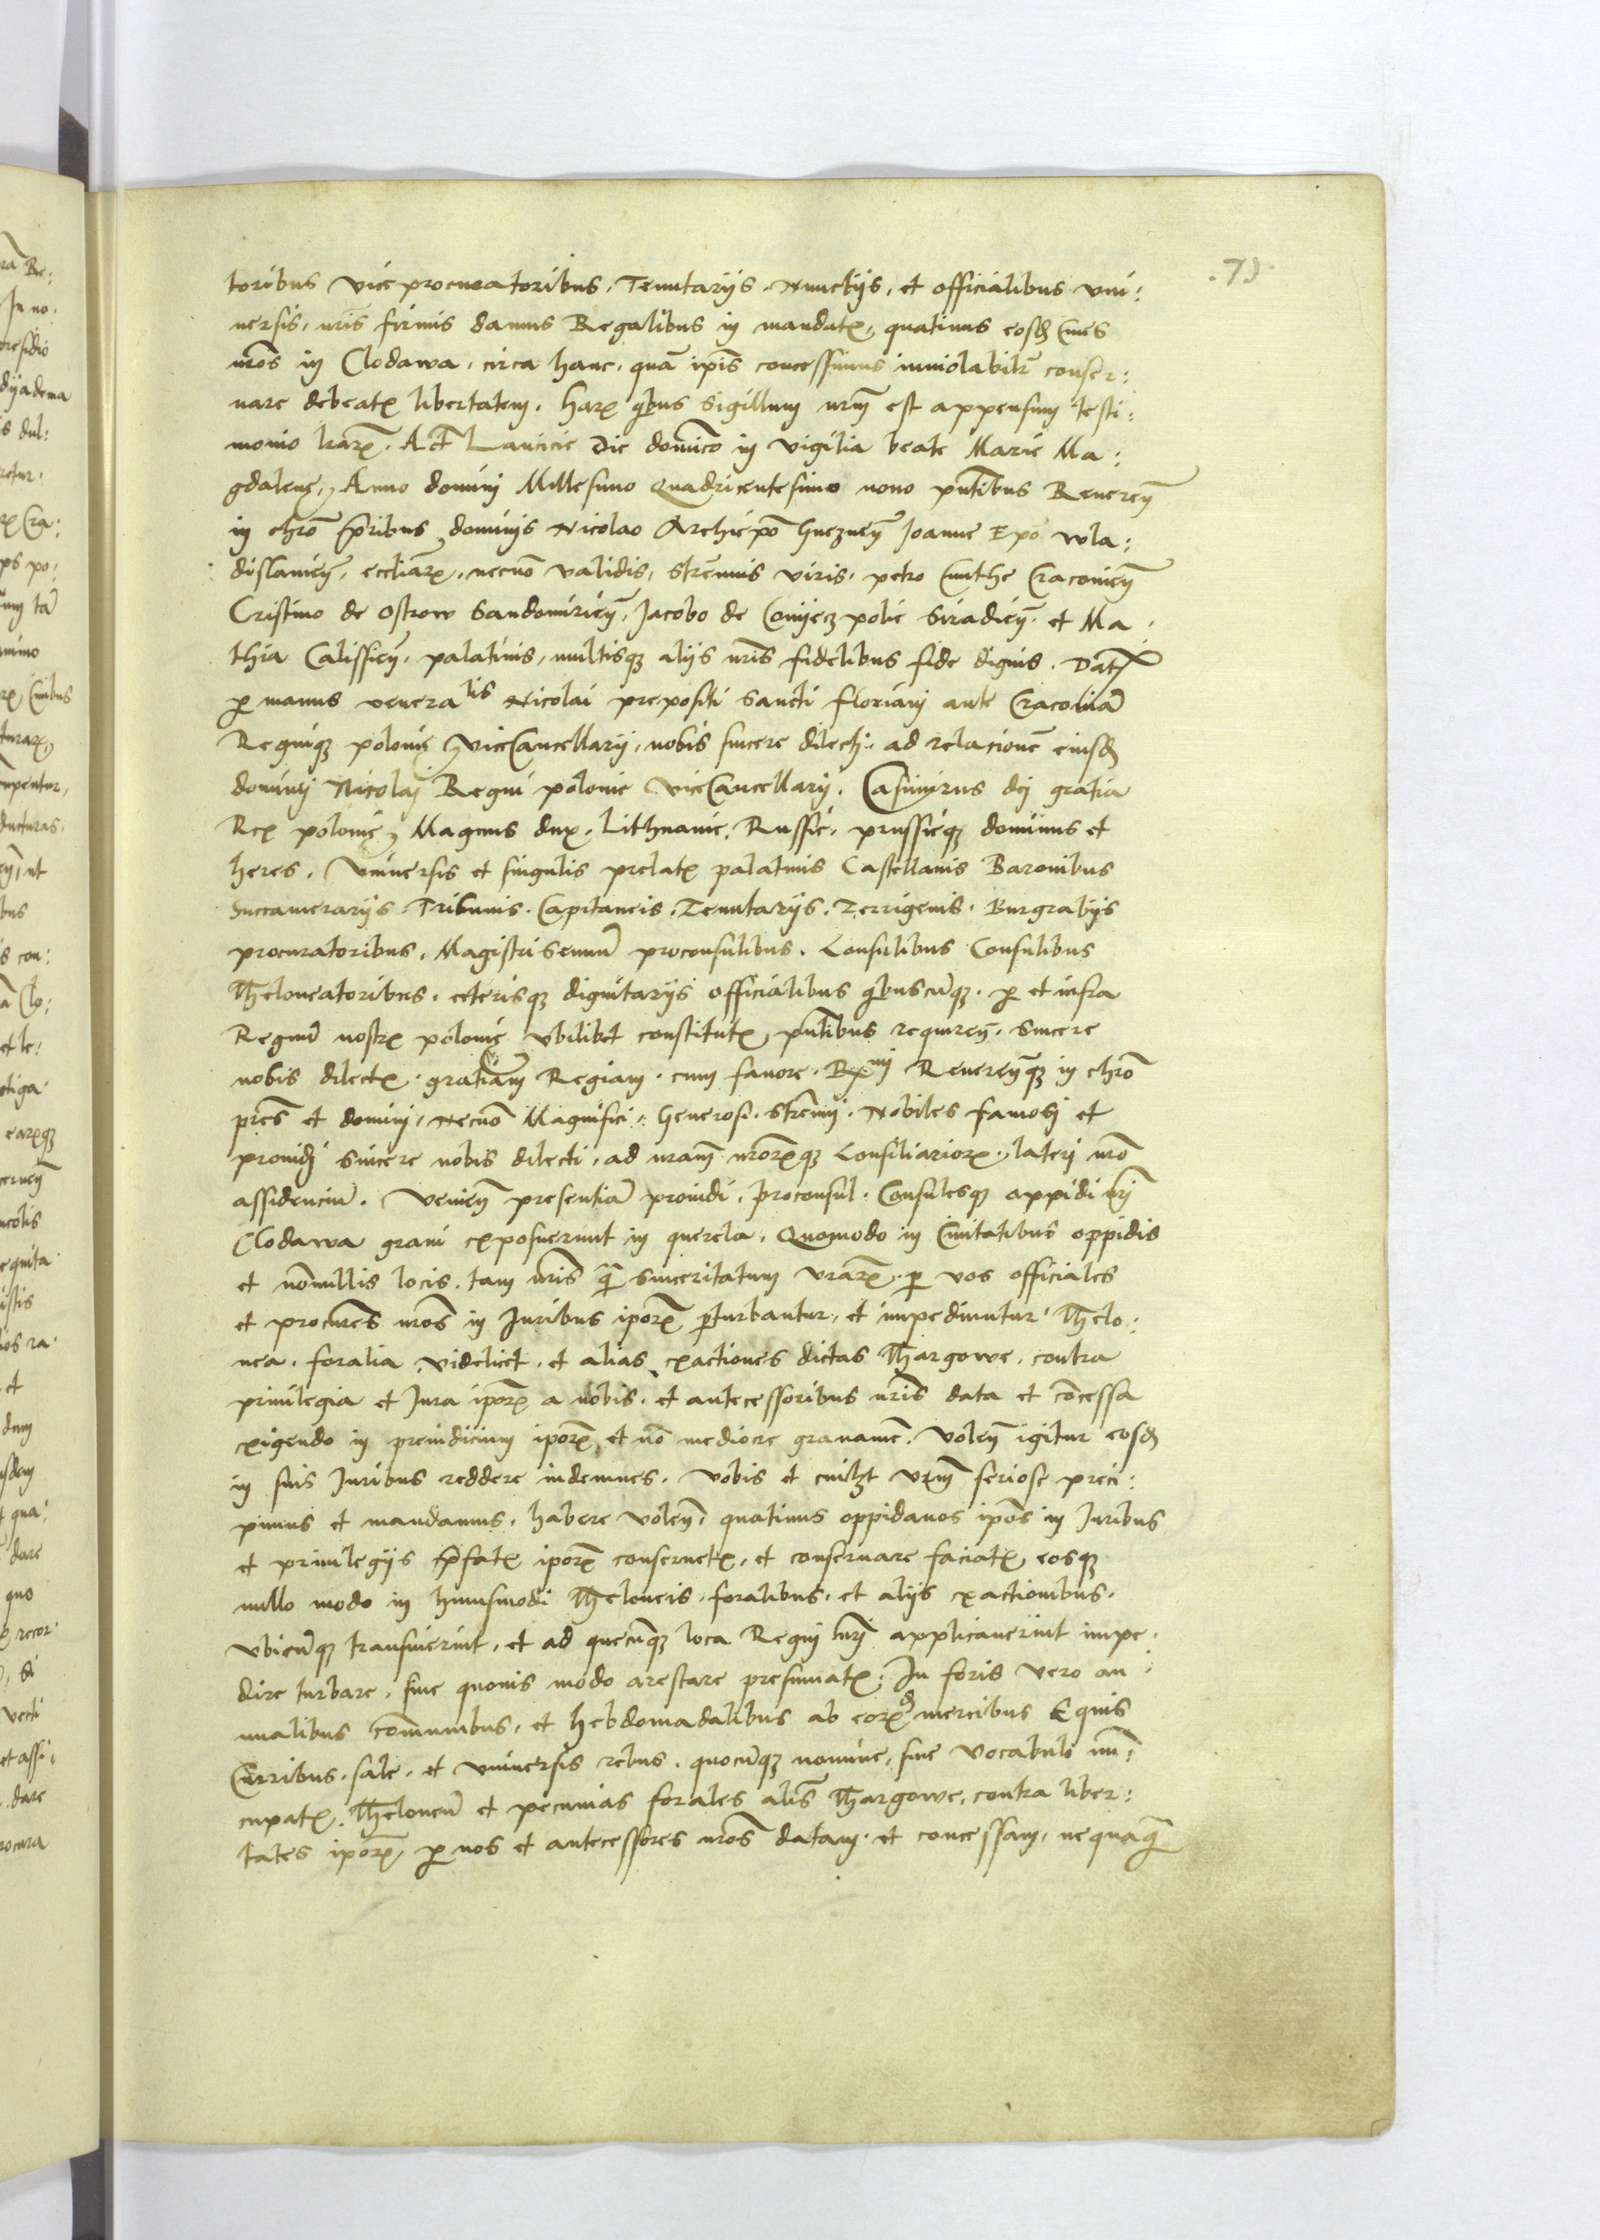 .71.
toribus vice procuratoribus. Tenutarijs. Nunctijs. et officialibus vni:
uersis, nris firmis damus Regalibus in mandatꝭ, quatinus eosdem Ciues
nros in Clodawa. circa hanc, quā ip̄is concessimus inuiolabilr̄ conser:
uare debeatꝭ libertatem. harꝝ qibus Sigillum nrm̄ est appensum testi:
monio lrarꝝ. Act̄ Lancicie Die dominico in vigilia beate Marie Ma:
gdalene, Anno domini Millesimo Quadricentesimo nono pntibus Reueren̄
in chrō pribus dominis Nicolao Archiepō Gnezneñ Joanne Epō Wla:
dislauieñ. eccliarꝝ. necnō validis, strēnuis viris. petro Cmithe Cracouieñ
Cristino de Ostrow Sandomirieñ, Jacobo de Coniecz polie Siradieñ. et Ma:
thia Calissieñ. palatinis, multisqꝫ alijs nris fidelibus fide dignis. Datꝭ
ꝑ manus venera lis Nicolai prepositi Sancti Floriani ante Cracouiā
Regniqꝫ polonie viceCancellarij, nobis sincere dilecti. ad relacionē eiusdē
domini Nicolaj Regni polonie ViceCancellarij. Casimirus dej gratia
Rex polonie Magnus dux. Lithuanie. Russie. prussieqꝫ dominus et
heres. Vniuersis et singulis prelatꝭ palatinis Castellanis Baronibus
Succamerarijs. Tribunis. Capitaneis. Tenutarijs. Terrigenis. Burgrabijs
procuratoribus. Magistrisciuiū proconsulibus. Consulibus Consulibus
Theloneatoribus. ceterisqꝫ dignitarijs officialibus qibuscūqꝫ. ꝑ et infra
Regnū nostrꝭ polonie vbilibet constitutꝭ pntibus requireñ. Sincere
nobis dilectꝭ. gratiam Regiam. cum fauore. Rxmi Reuereñqꝫ in chrō
pres et domini, Necnō Magnifici. Generosi. strēnui. Nobiles famosi et
prouidi sincere nobis dilecti. ad nram nrorꝝqꝫ Consiliariorꝝ. laterj nrō
assidenciū. Venieñ presentiā prouidi, proconsul. Consulesqꝫ oppidi nri
Clodawa graui exposuerunt in querela. Quomodo in Ciuitatibus oppidis
et nōnullis locis. tam nris qͣ sinceritatum vrarꝝ. ꝑ vos officiales
et procures nros in Juribus iporꝝ ꝑturbantur, et impediuntur Thelo:
nea. foralia videlicet. et alias exactiones dictas Thargowe. contra
priuilegia et Jura iporꝝ a nobis. et antecessoribus nris data et cōcessa
exigendo in preiudicium iporꝝ et nō mediocre grauamē. Voleñ igitur eosdē
in suis Juribus reddere indemnes. Vobis et cuilꝫt vrm̄ seriose preci:
pimus et mandamus. habere voleñ. quatinus oppidanos ipōs in Juribus
et priuilegijs p̄fatꝭ iporꝝ conseruetꝭ. et conseruare faciatꝭ eosqꝫ
nullo modo in huiusmodi Theloneis. foralibus. et alijs exactionibus.
vbicūqꝫ transiuerint. et ad quecūqꝫ loca Regni nri applicauerint impe.
dire turbare. siue quouis modo arestare presumatꝭ. In foris vero an:
nualibus cōmunibus. et hebdomadalibus ab eorꝝ mercibus Equis
Curribus. sale. et vniuersis rebus. quocūqꝫ nomine, siue vocabulo nū:
cupatꝭ. Theloneū et pecunias forales alis Thargowe. contra liber:
tates iporꝝ ꝑ nos et antecessores nros datam. et concessam. nequaqͣ